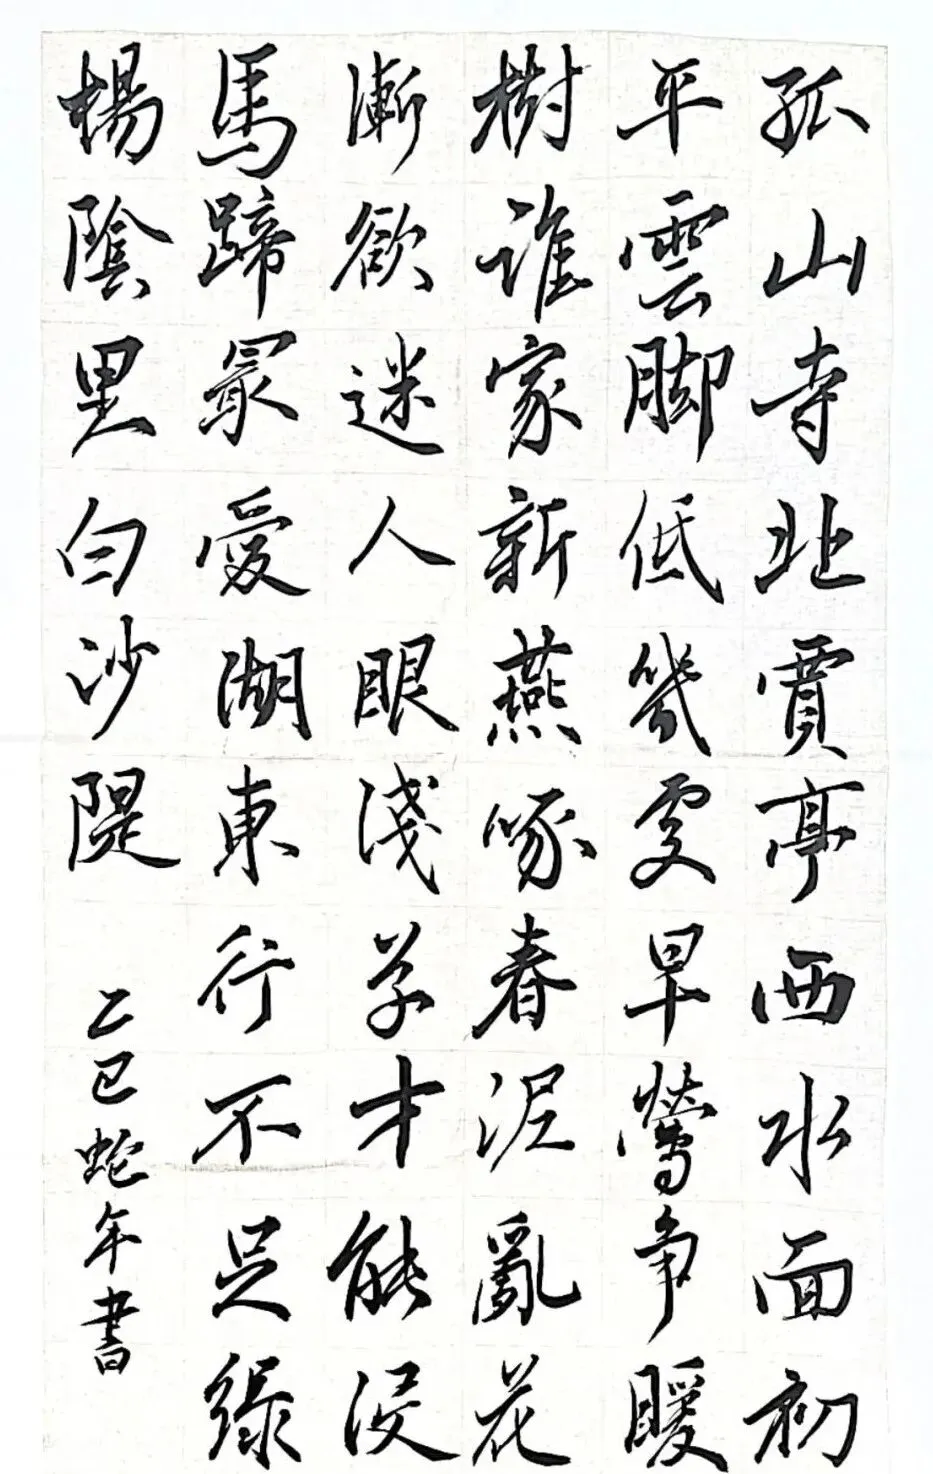 孤山寺北賈亭西水面初
平雲脚低幾處早鶯爭暖
樹誰家新燕啄春泥亂花
漸欲迷人眼淺草才能浸
馬蹄最愛湖東行不足綠
楊陰里白沙隄
乙巳蛇年書